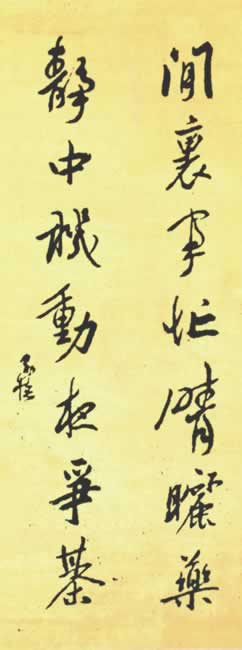 閒裏事忙晴曬藥
靜中機動夜爭棊